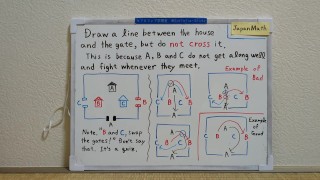 JapanMath
Draw a line between the house
and the gate, but do not cross it.
This is because A, B and C do not get along well
and fight whenever they meet.
Example of
Bad
A
B
C
C
B
A
Note, "B and C, swap
the gates!" Don't say
that. It's a quiz.
A
C
B
C
B
A
A
C
B
C
B
A
A
C
B
C
B
A
Example
of
Good
A
C
B
C
B
A